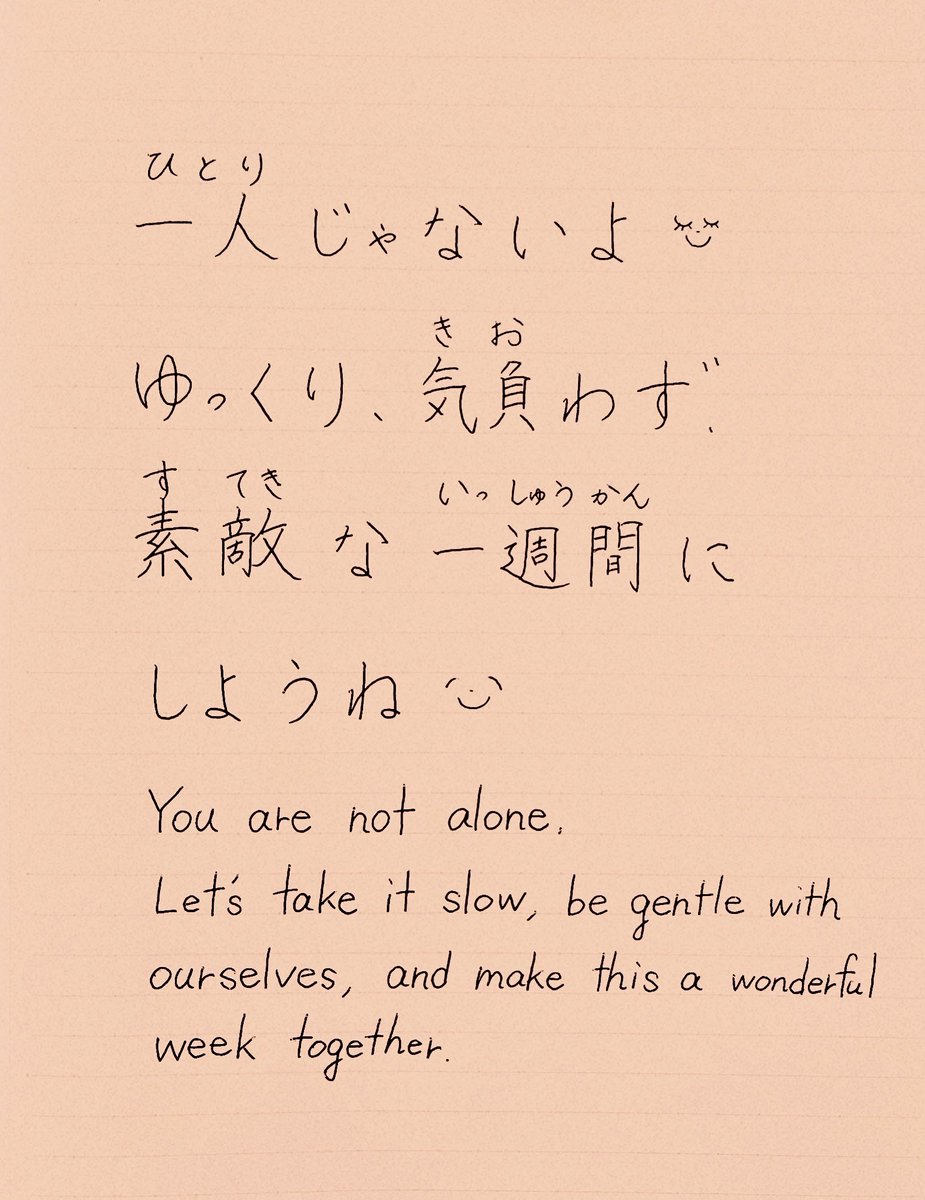 ひとり
一人じゃないよ
きお
ゆっくり、気負わず、
すてき いっしゅうかん
素敵な一週間に
しようね
You are not alone.
Let's take it slow, be gentle with
ourselves, and make this a wonderful
week together.